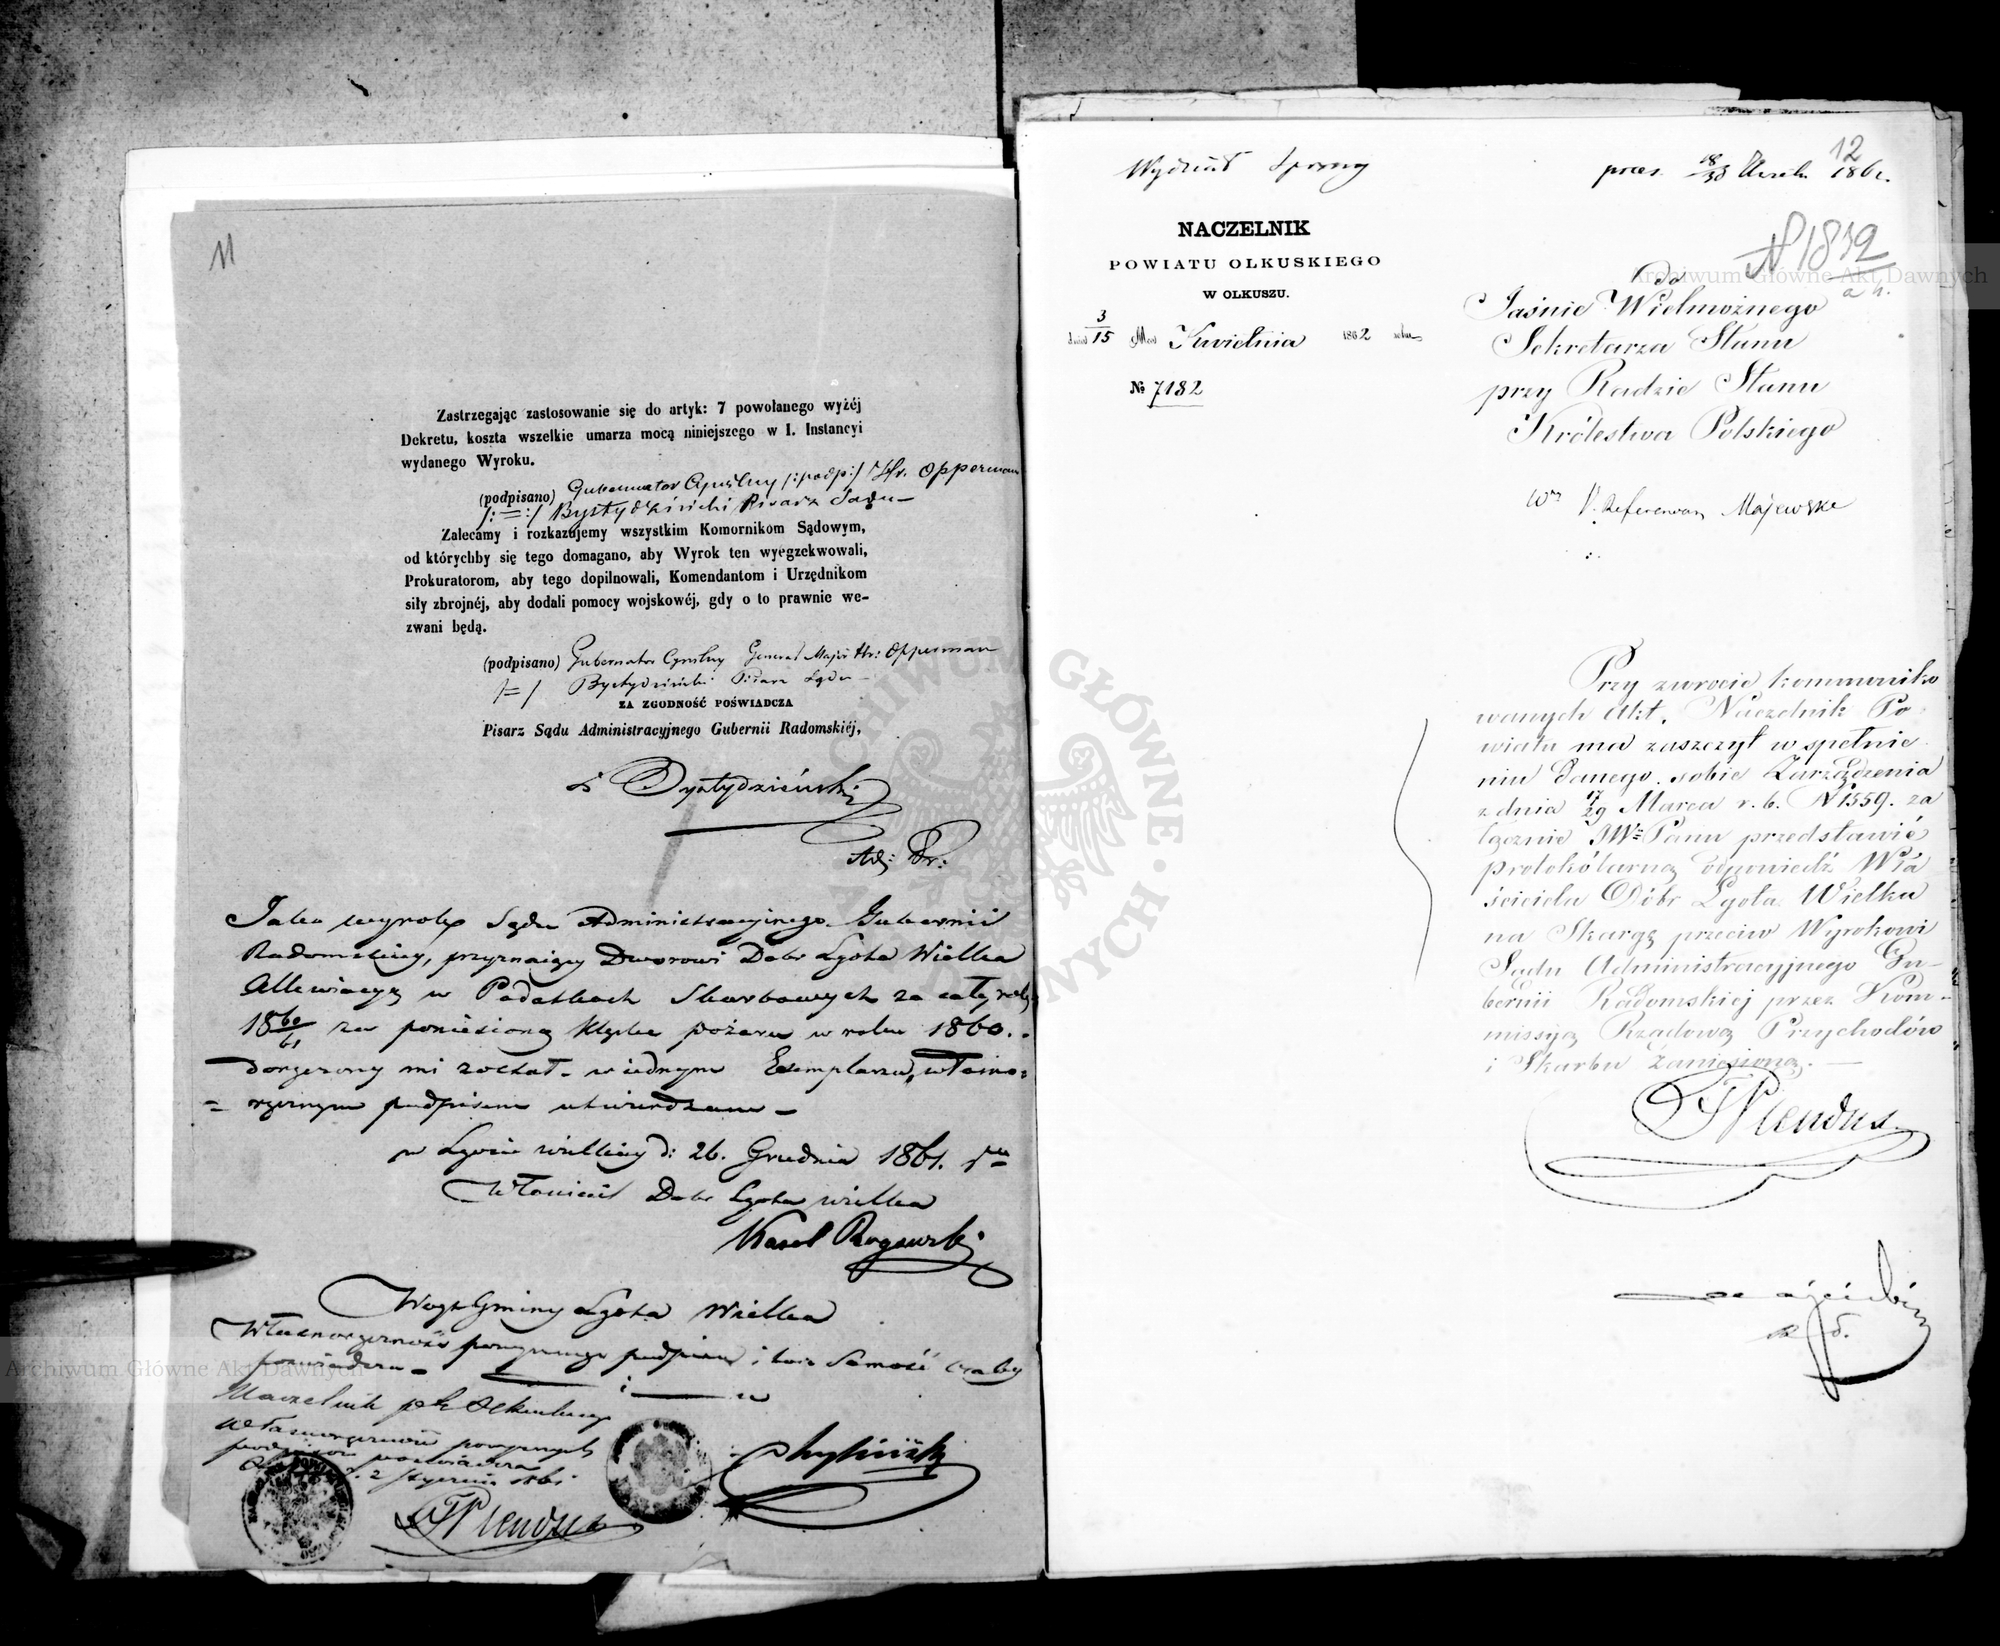 11
Zastrzegając zastosowanie się do artyk: 7 powołanego wyżéj
Dekretu, koszta wszelkie umarza mocą niniejszego w I. Instancyi
wydanego Wyroku.
(podpisano) Gubernator Cywilny /:podp:/ Hr. Opperman
/:=:/ Bystydzieński Pisarz Sądu
Zalecamy i rozkazujemy wszystkim Komornikom Sądowym,
od którychby się tego domagano, aby Wyrok ten wyegzekwowali,
Prokuratorom, aby tego dopilnowali, Komendantom i Urzędnikom
siły zbrojnéj, aby dodali pomocy wojskowéj, gdy o to prawnie we-
zwani będą.
(podpisano) Gubernator Cywilny General Major Hr: Opperman
/=/ Bystydzieński Pisarz Sądu
ZA ZGODNOŚĆ POŚWIADCZA
Pisarz Sądu Administracyjnego Gubernii Radomskiéj,
Bystydzieński
Jako wyrok Sądu Administracyjnego Gubernii
Radomskiey, przyznaiący Dworowi Dobr Lgota Wielka
Allewiacyą w Podatkach Skarbowych za cały rok
1860/61 za poniesioną klęskę pożaru w roku 1860.
doręczony mi został w iednym Exemplarzu, własno-
= ręcznym podpisem utwierdzam
w Lgocie wielkiey d: 26. Grudnia 1861.
Właściciel Dobr Lgota wielka
Karol Rogawski
Woyt Gminy Lgota Wielka
Własnoręczność powyższego podpisu i toż Samość osoby
poświadcza
Naczelnik ptu Olkuskiego
własnoręczność powyższych
podpisów poświadcza
2 Stycznia
Plendus
12
Wydział Sporny
prez. 18/30 1862.
NACZELNIK
POWIATU OLKUSKIEGO
W OLKUSZU.
dnia 3/15 Mca Kwietnia 1862 roku
№ 7182
N 1832
Do
Jaśnie Wielmożnego
Sekretarza Stanu
przy Radzie Stanu
Królestwa Polskiego
Wny Referendarz Majewski
Przy zwrocie kommuniko
wanych Akt, Naczelnik Po-
wiatu ma zaszczyt w spełnie
niu danego sobie Zarządzenia
z dnia 17/29 Marca r. b. N 1559. za
łącznie JW Panu przedstawić
protokólarną odpowiedź Wła
ściciela Dóbr Lgota Wielka
na Skargę przeciw Wyrokowi
Sądu Administracyjnego Gu-
bernii Radomskiej przez Kom-
missyą Rządową Przychodów
i Skarbu Zaniesioną.
Plendus
Archiwum Główne Akt Dawnych
Archiwum Główne Akt Dawnych
ARCHIWUM GŁÓWNE AKT DAWNYCH